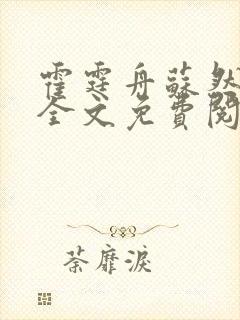 霍霆舟蘇然
全文免費閱
荼靡淚